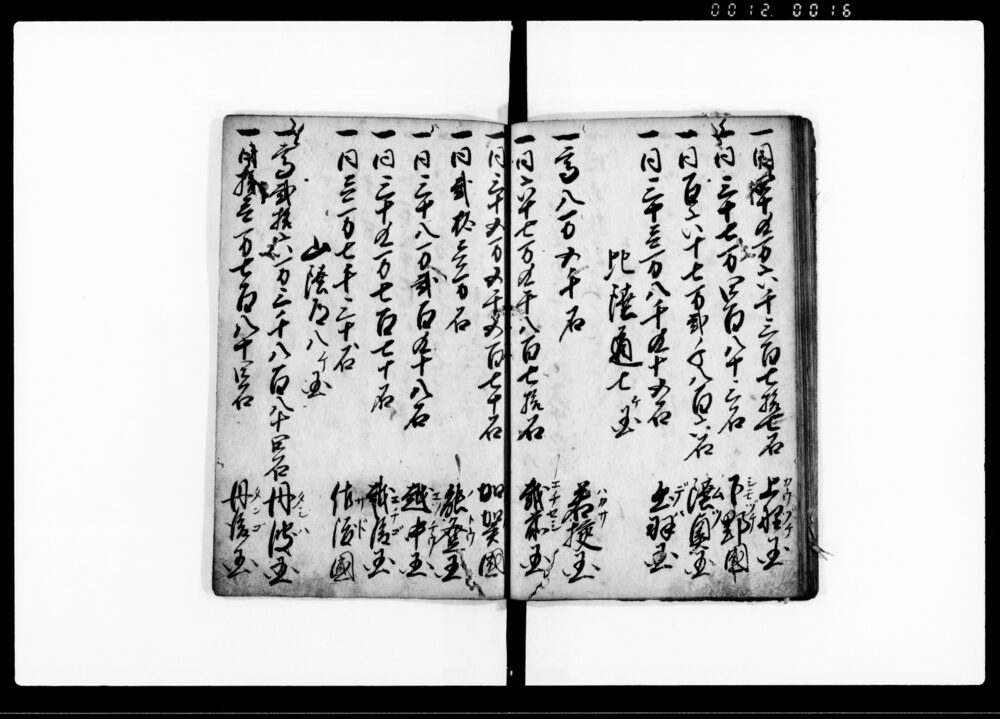 0012.0016
一同四十五万六千三百七拾七石 上野国 カウヅケ
一同三十七万四百八十三石 下野國 シモツケ
一同百六十七万弐千八百六石 陸奥国 ムツ
一同三十三万八千五十五石 出羽国 デハ
北陸道七ヶ国
一高八万五千石 若狭国 ハカサ
一同六十七万五千八百七拾石 越前国 エチゼン
一同三十五万五千五百七十石 加賀國
一同弐拾三万石 能登国 ノトウ
一同三十八万弐百五十八石 越中国 エツチウ
一同三十五万七百七十石 越後国 エチゴ
一同三万七千三十石 佐渡國 サド
山陰道八ヶ国
一高弐拾六万三千八百八十四石 丹波国 タンバ
一同拾三万七百八十四石 丹後国 タンゴ